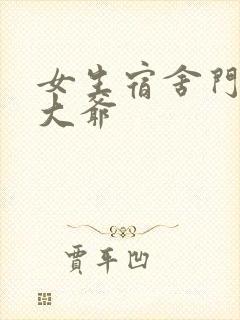 女生宿舍門
大爺
賈平凹